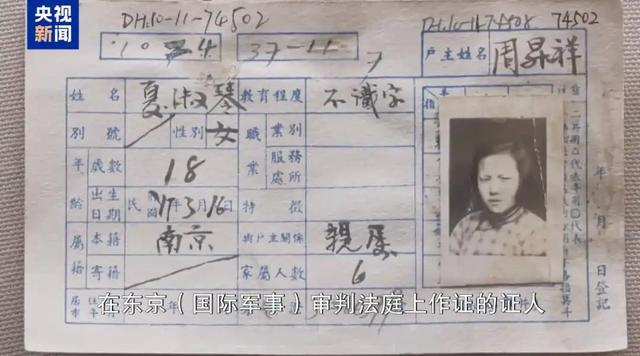 央视新闻
DH.10-11-74502
DH.10-11-74508 74502
10 24
37-11-7
戶主姓名 周昇祥
姓名 夏淑琴 教育程度 不識字
別號 性別 女 職業 業別
年齡 歲數 18 服務處所
出生日期 民國17年3月16日 特徵
屬籍 本籍 南京 與戶主關係 親屬
寄籍 家屬人數 6
年 月 日登記
在东京（国际军事）审判法庭上作证的证人